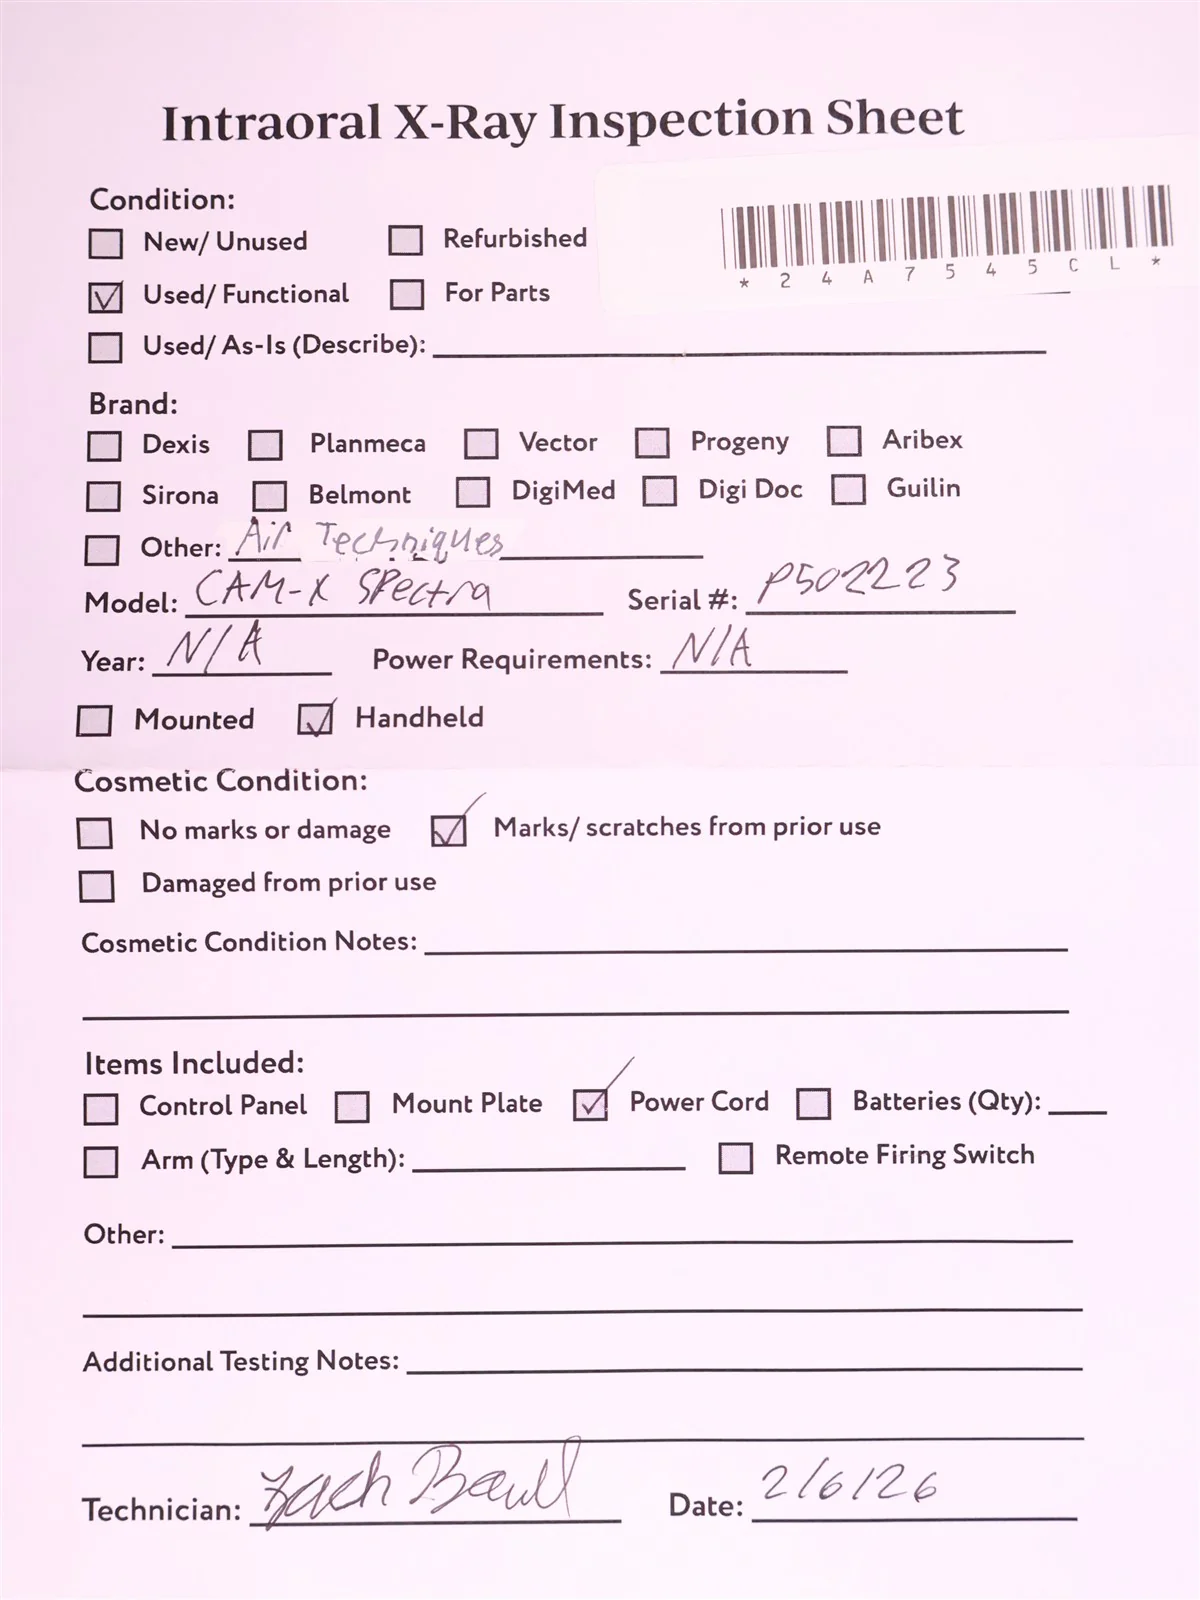 Intraoral X-Ray Inspection Sheet
Condition:
New/ Unused Refurbished
*24A7545CL*
Used/ Functional For Parts
Used/ As-Is (Describe):
Brand:
Dexis Planmeca Vector Progeny Aribex
Sirona Belmont DigiMed Digi Doc Guilin
Other: Air Techniques
Model: CAM-X SPectra Serial #: P502223
Year: N/A Power Requirements: N/A
Mounted Handheld
Cosmetic Condition:
No marks or damage Marks/ scratches from prior use
Damaged from prior use
Cosmetic Condition Notes:
Items Included:
Control Panel Mount Plate Power Cord Batteries (Qty):
Arm (Type & Length): Remote Firing Switch
Other:
Additional Testing Notes:
Technician: Zach Date: 2/6/26